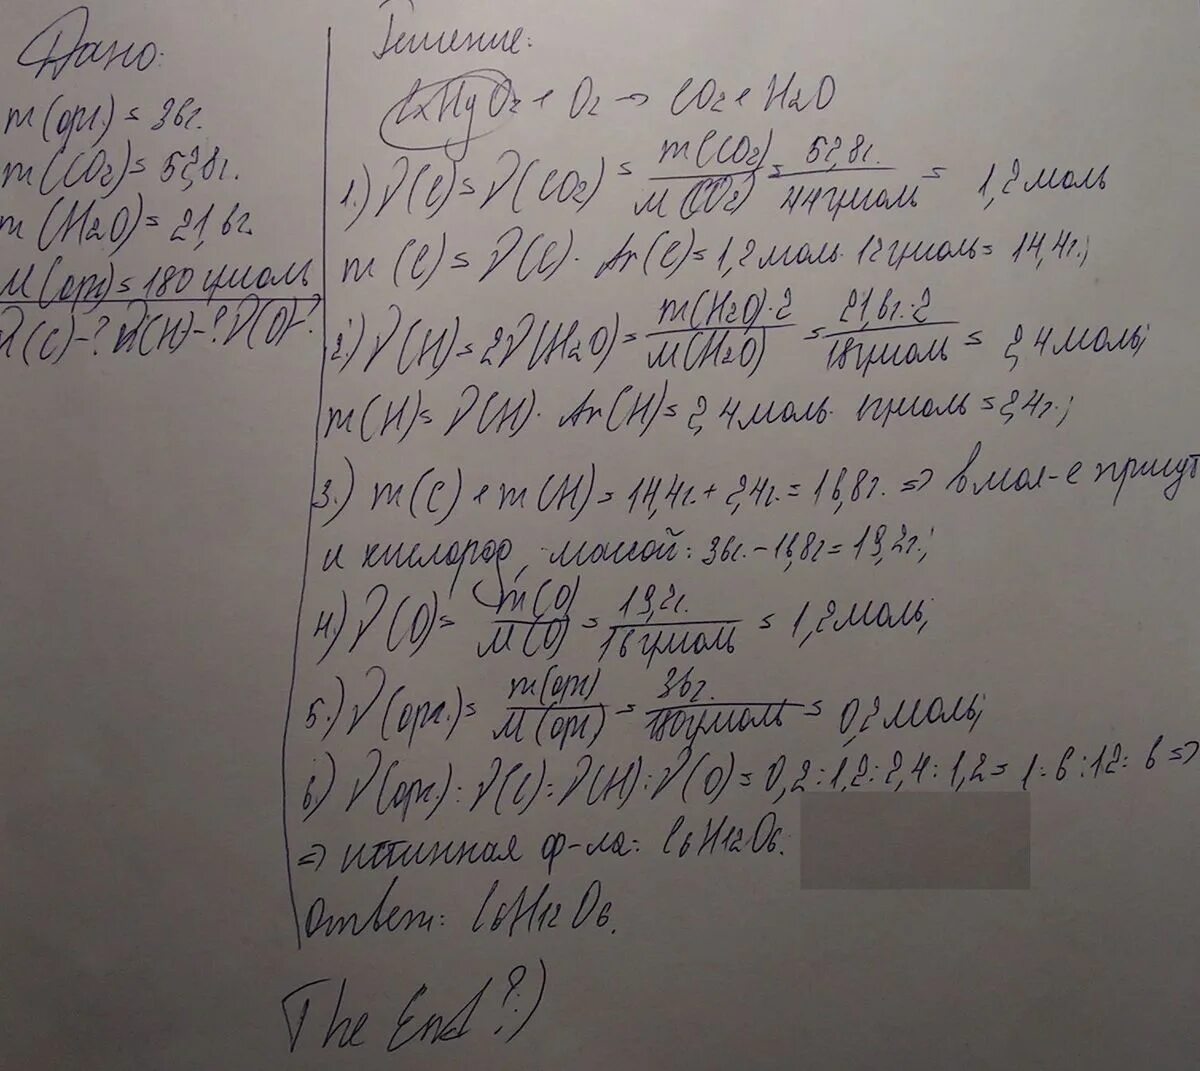 Дано:
m(орг.) = 36г.
m(CO2) = 52,8г.
m(H2O) = 21,6г.
M(орг) = 180 г/моль
ν(C)-? ν(H)-? ν(O)-?
Решение:
CxHyOz + O2 → CO2 + H2O
1.) ν(C) = ν(CO2) = m(CO2)/M(CO2) = 52,8г./44г/моль = 1,2 моль
m(C) = ν(C) · Ar(C) = 1,2 моль · 12г/моль = 14,4г.;
2.) ν(H) = 2ν(H2O) = m(H2O)·2/M(H2O) = 21,6г·2/18г/моль = 2,4моль;
m(H) = ν(H) · Ar(H) = 2,4 моль · 1г/моль = 2,4г.;
3.) m(C) + m(H) = 14,4г. + 2,4г. = 16,8г. => в мол-е присут
и кислород, массой: 36г. - 16,8г = 19,2г.;
4.) ν(O) = m(O)/M(O) = 19,2г./16г/моль = 1,2моль;
5.) ν(орг.) = m(орг)/M(орг) = 36г./180г/моль = 0,2моль;
6) ν(орг.) : ν(C) : ν(H) : ν(O) = 0,2 : 1,2 : 2,4 : 1,2 = 1 : 6 : 12 : 6 =>
=> истинная ф-ла: C6H12O6.
Ответ: C6H12O6.
The End?)